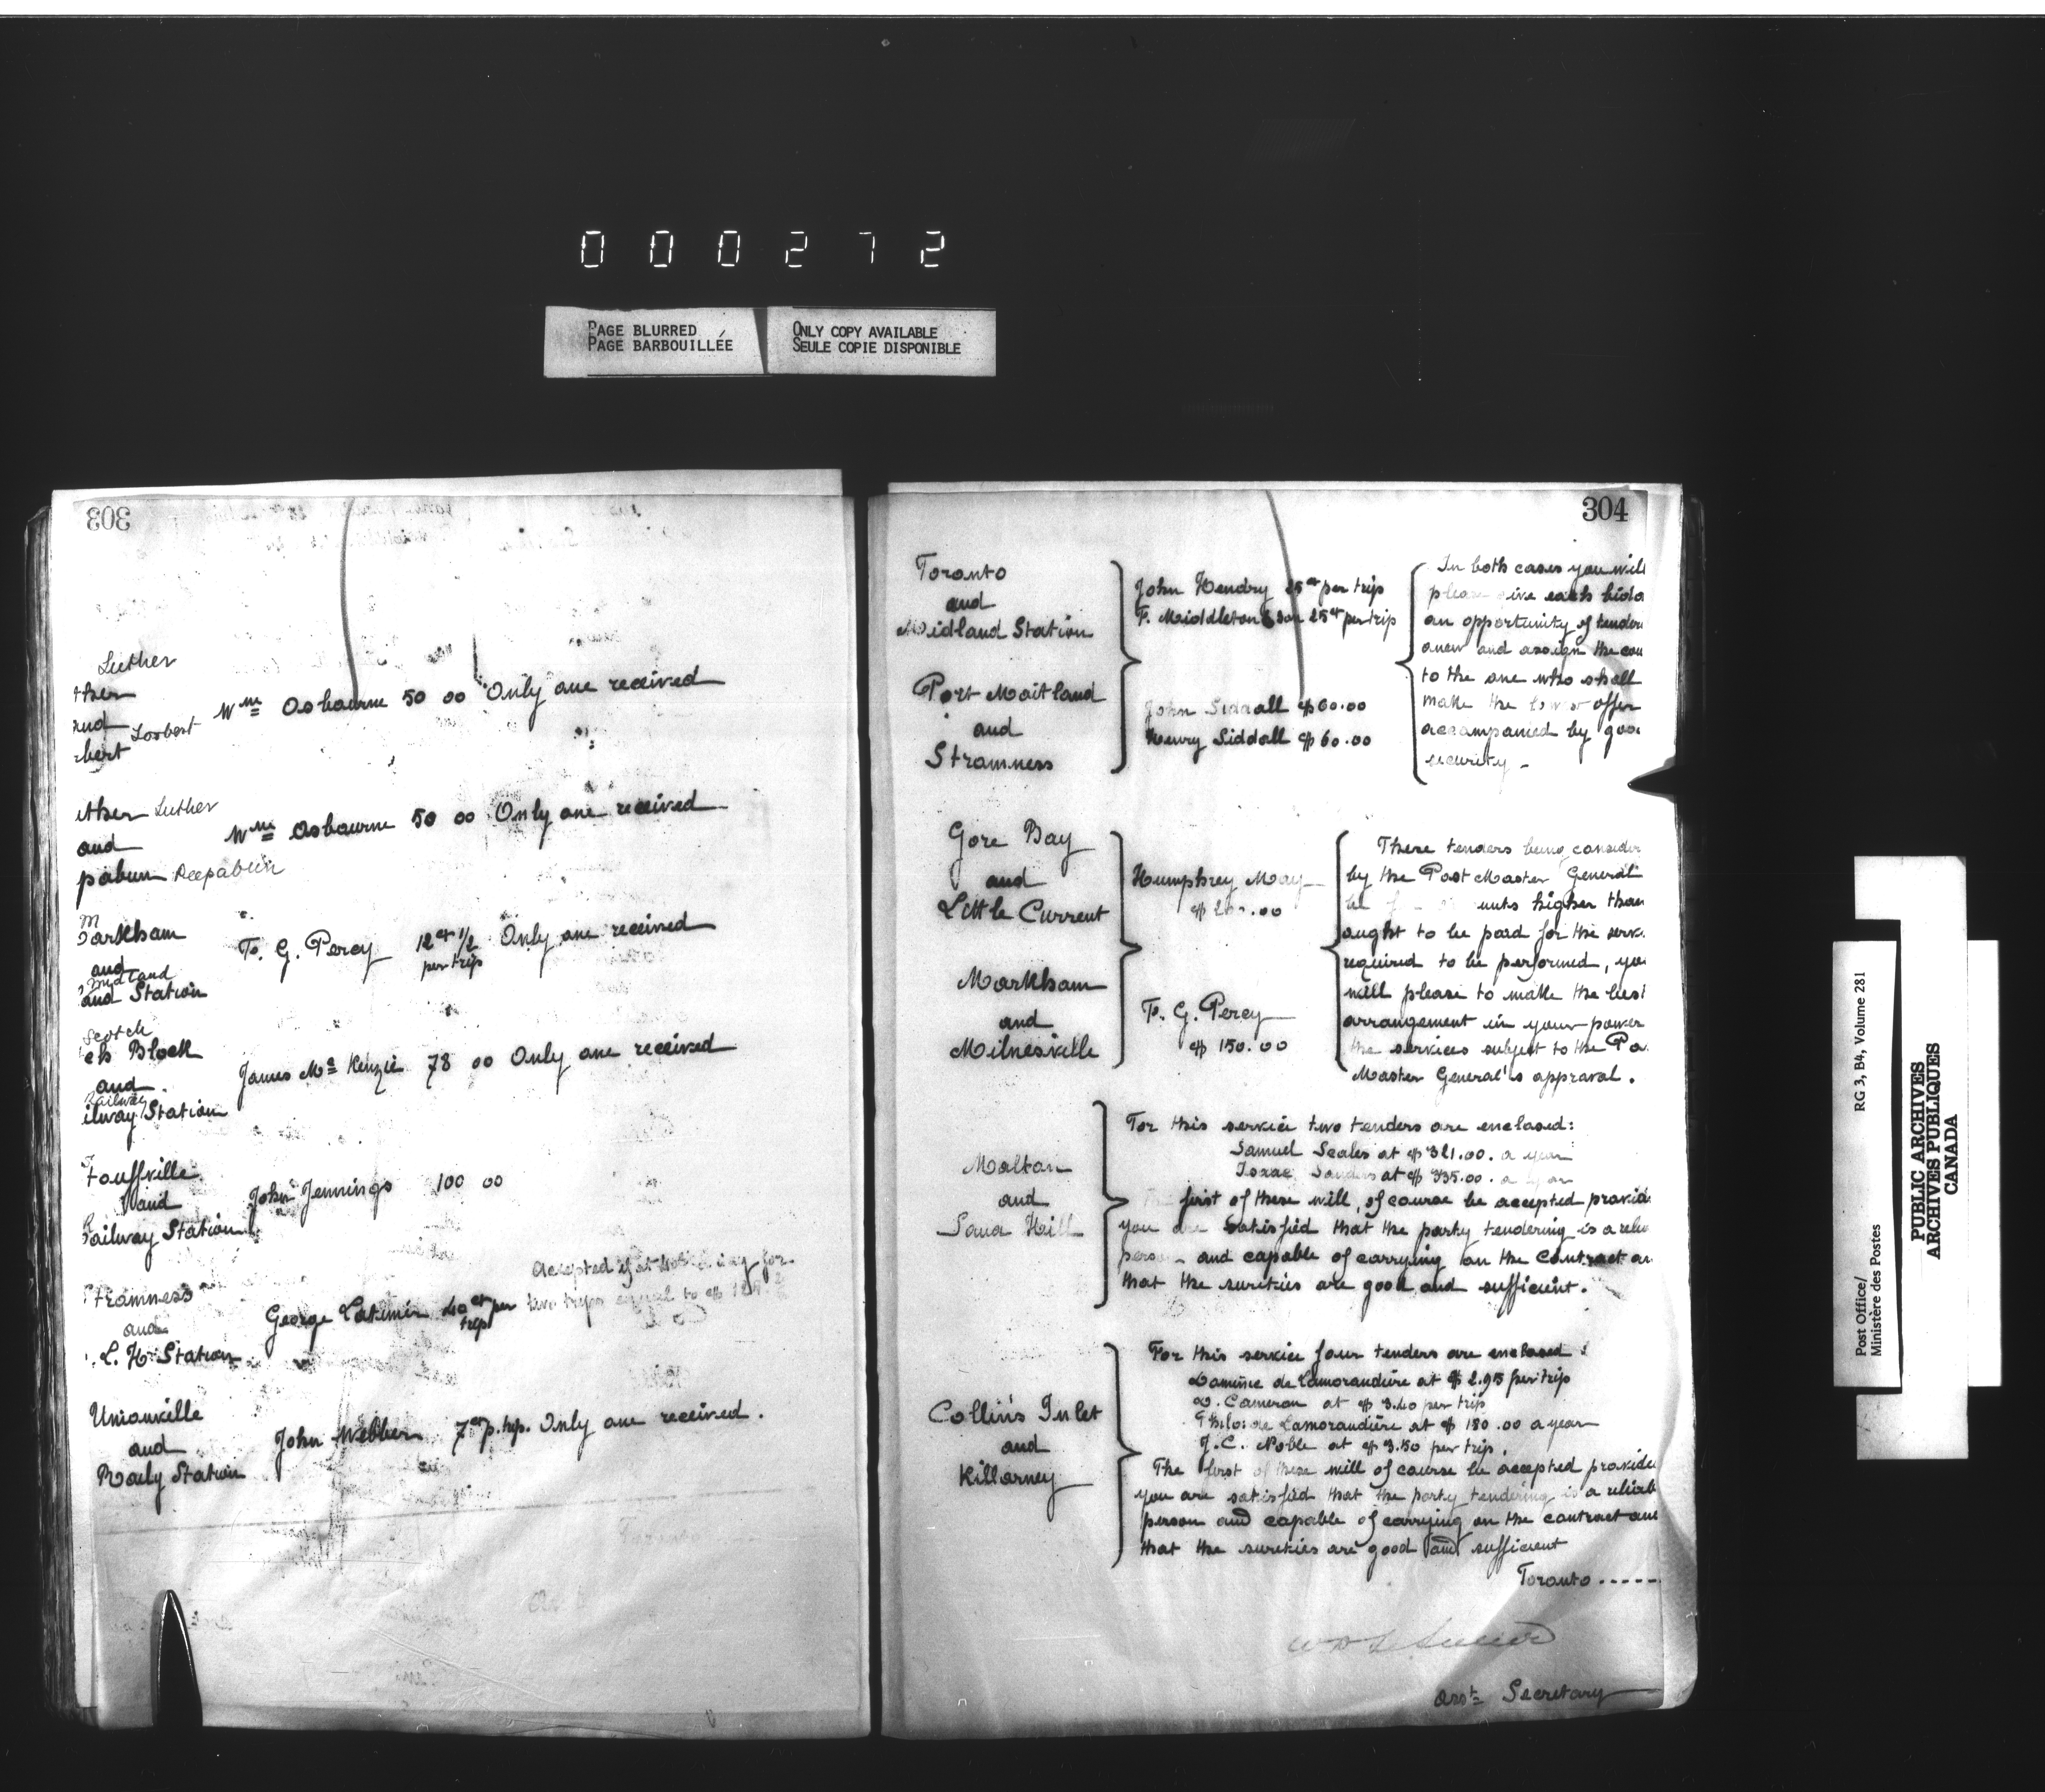 000272
PAGE BLURRED
PAGE BARBOUILLÉE
ONLY COPY AVAILABLE
SEULE COPIE DISPONIBLE
303
Luther
ther
and
bert Lorbert Wm Osbourne 50 00 Only one received
ther Luther
and Wm Osbourne 50 00 Only one received
pabun Peepabun
M
arkham
and T. G. Percy 12 ct 1/2 per trip Only one received
Midland
and Station
Scotch
ch Block
and James Mc Kenzie 78 00 Only one received
Railway
ilway Station
S
touffville
and John Jennings 100 00
R
ailway Station
Accepted if at
tramness
and George Latimer 40 ct per trip two trips equal to $
L. H. Station
Unionville
and John Webber 7 ct p. trip. Only one received.
Raily Station
304
Toronto
and
Midland Station
John Hendry 25 ct per trip
F. Middleton & Son 25 ct per trip
Port Maitland
and
Stramness
John Siddall $60.00
Henry Siddall $60.00
In both cases you will
please give each bidd
an opportunity of tender
anew and assign the con
to the one who shall
make the lowest offer
accompanied by goo
security -
Gore Bay
and
Little Current
Humphrey May
Markham
and
Milnesville
T. G. Percy
$150.00
These tenders being consider
by the Post Master General
higher than
ought to be paid for the serv
required to be performed, you
will please to make the best
arrangement in your power
the services subject to the Po
Master General's approval.
Malton
and
Sand Hill
For this service two tenders are enclosed:
Samuel Scales at $321.00. a year
Isaac Sanders at $335.00. a year
The first of these will, of course be accepted provid
you are satisfied that the party tendering is a relia
person and capable of carrying on the contract an
that the sureties are good and sufficient.
Collin's Inlet
and
Killarney
For this service four tenders are enclosed:
de Lamorandiere at $2.95 per trip
D. Cameron at $3.40 per trip
de Lamorandière at $150.00 a year
J. C. Noble at $3.50 per trip.
The first of these will of course be accepted provide
you are satisfied that the party tendering is a reliab
person and capable of carrying on the contract and
that the sureties are good and sufficient
Toronto -----
W D LeSueur
Asst Secretary
Post Office/
Ministère des Postes
RG 3, B4, Volume 281
PUBLIC ARCHIVES
ARCHIVES PUBLIQUES
CANADA